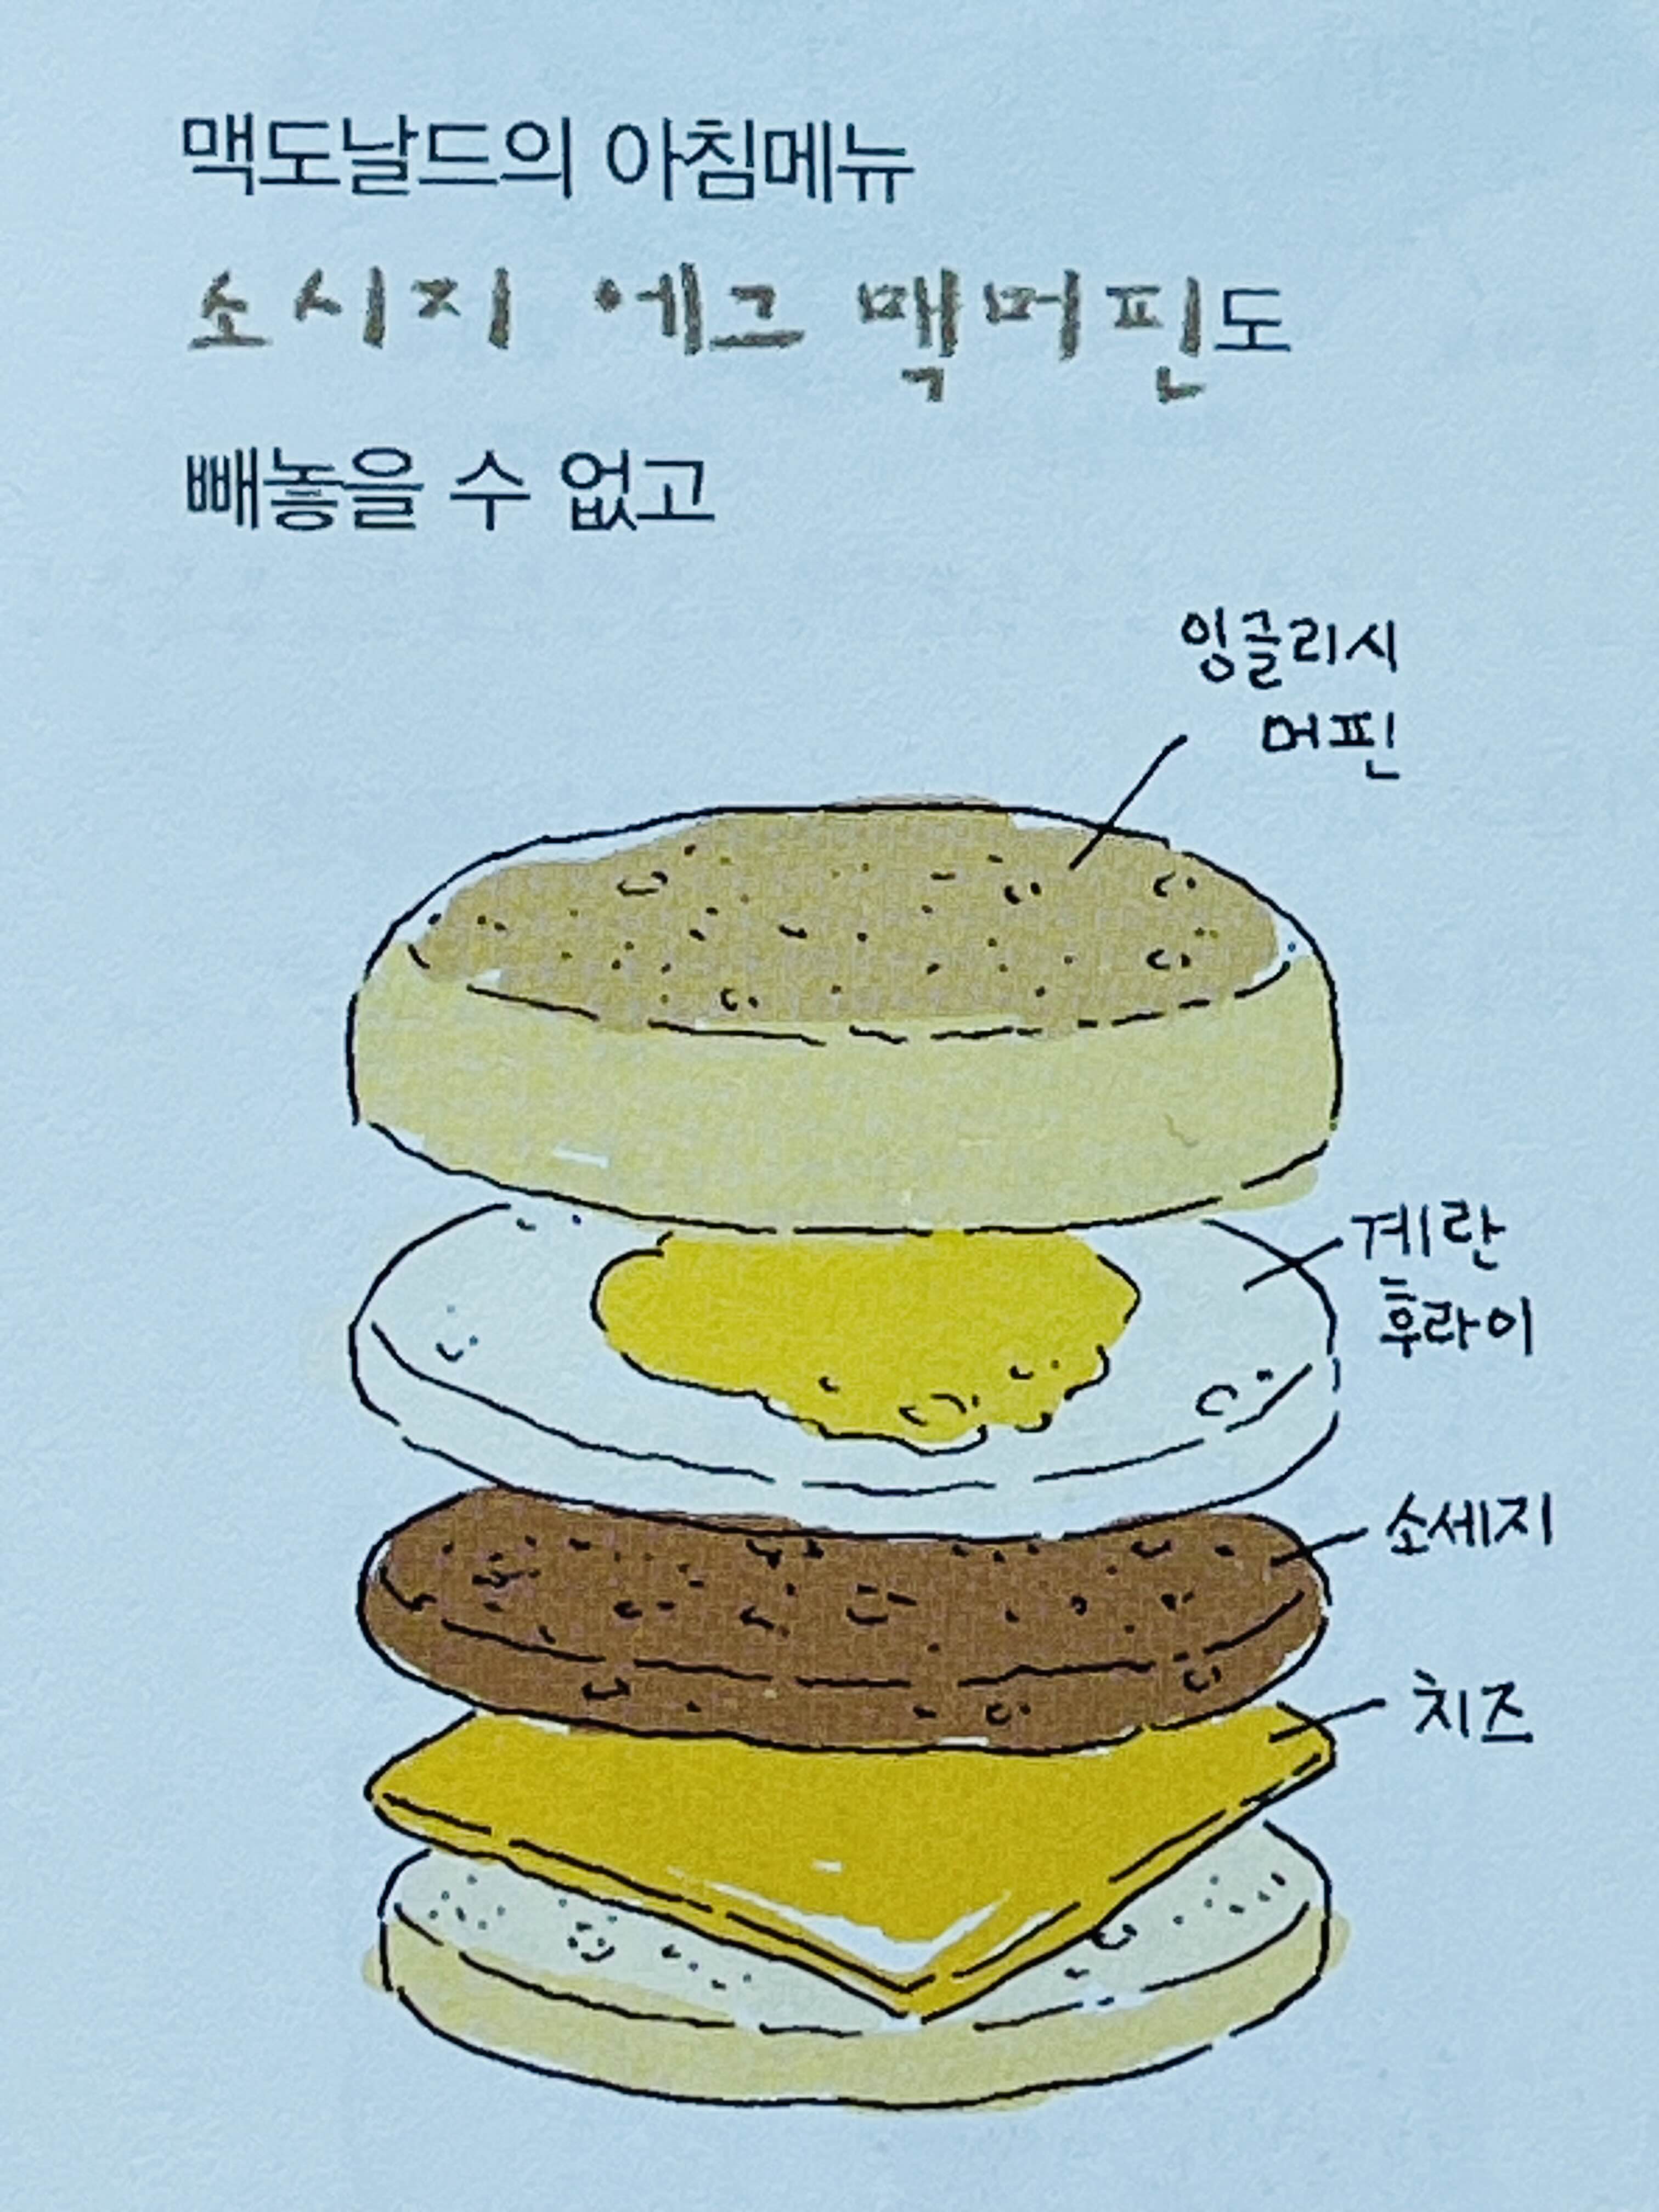 맥도날드의 아침메뉴
소시지 에그 맥머핀도
빼놓을 수 없고
잉글리시
머핀
계란
후라이
소세지
치즈